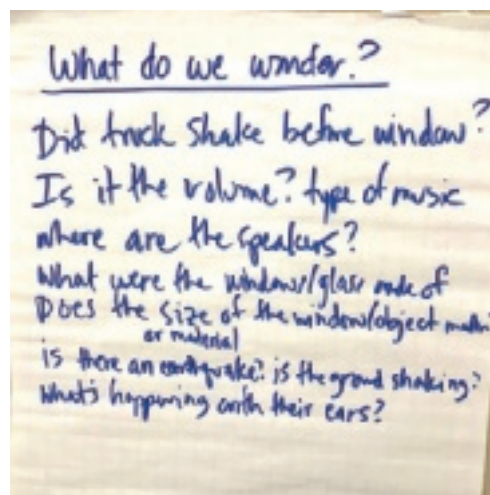 What do we wonder.?
Did truck shake before window?
Is it the volume? type of music
where are the speakers?
What were the windows/glass made of
Does the size of the window/object
or material
is there an earthquake? is the ground shaking?
What's happening with their ears?